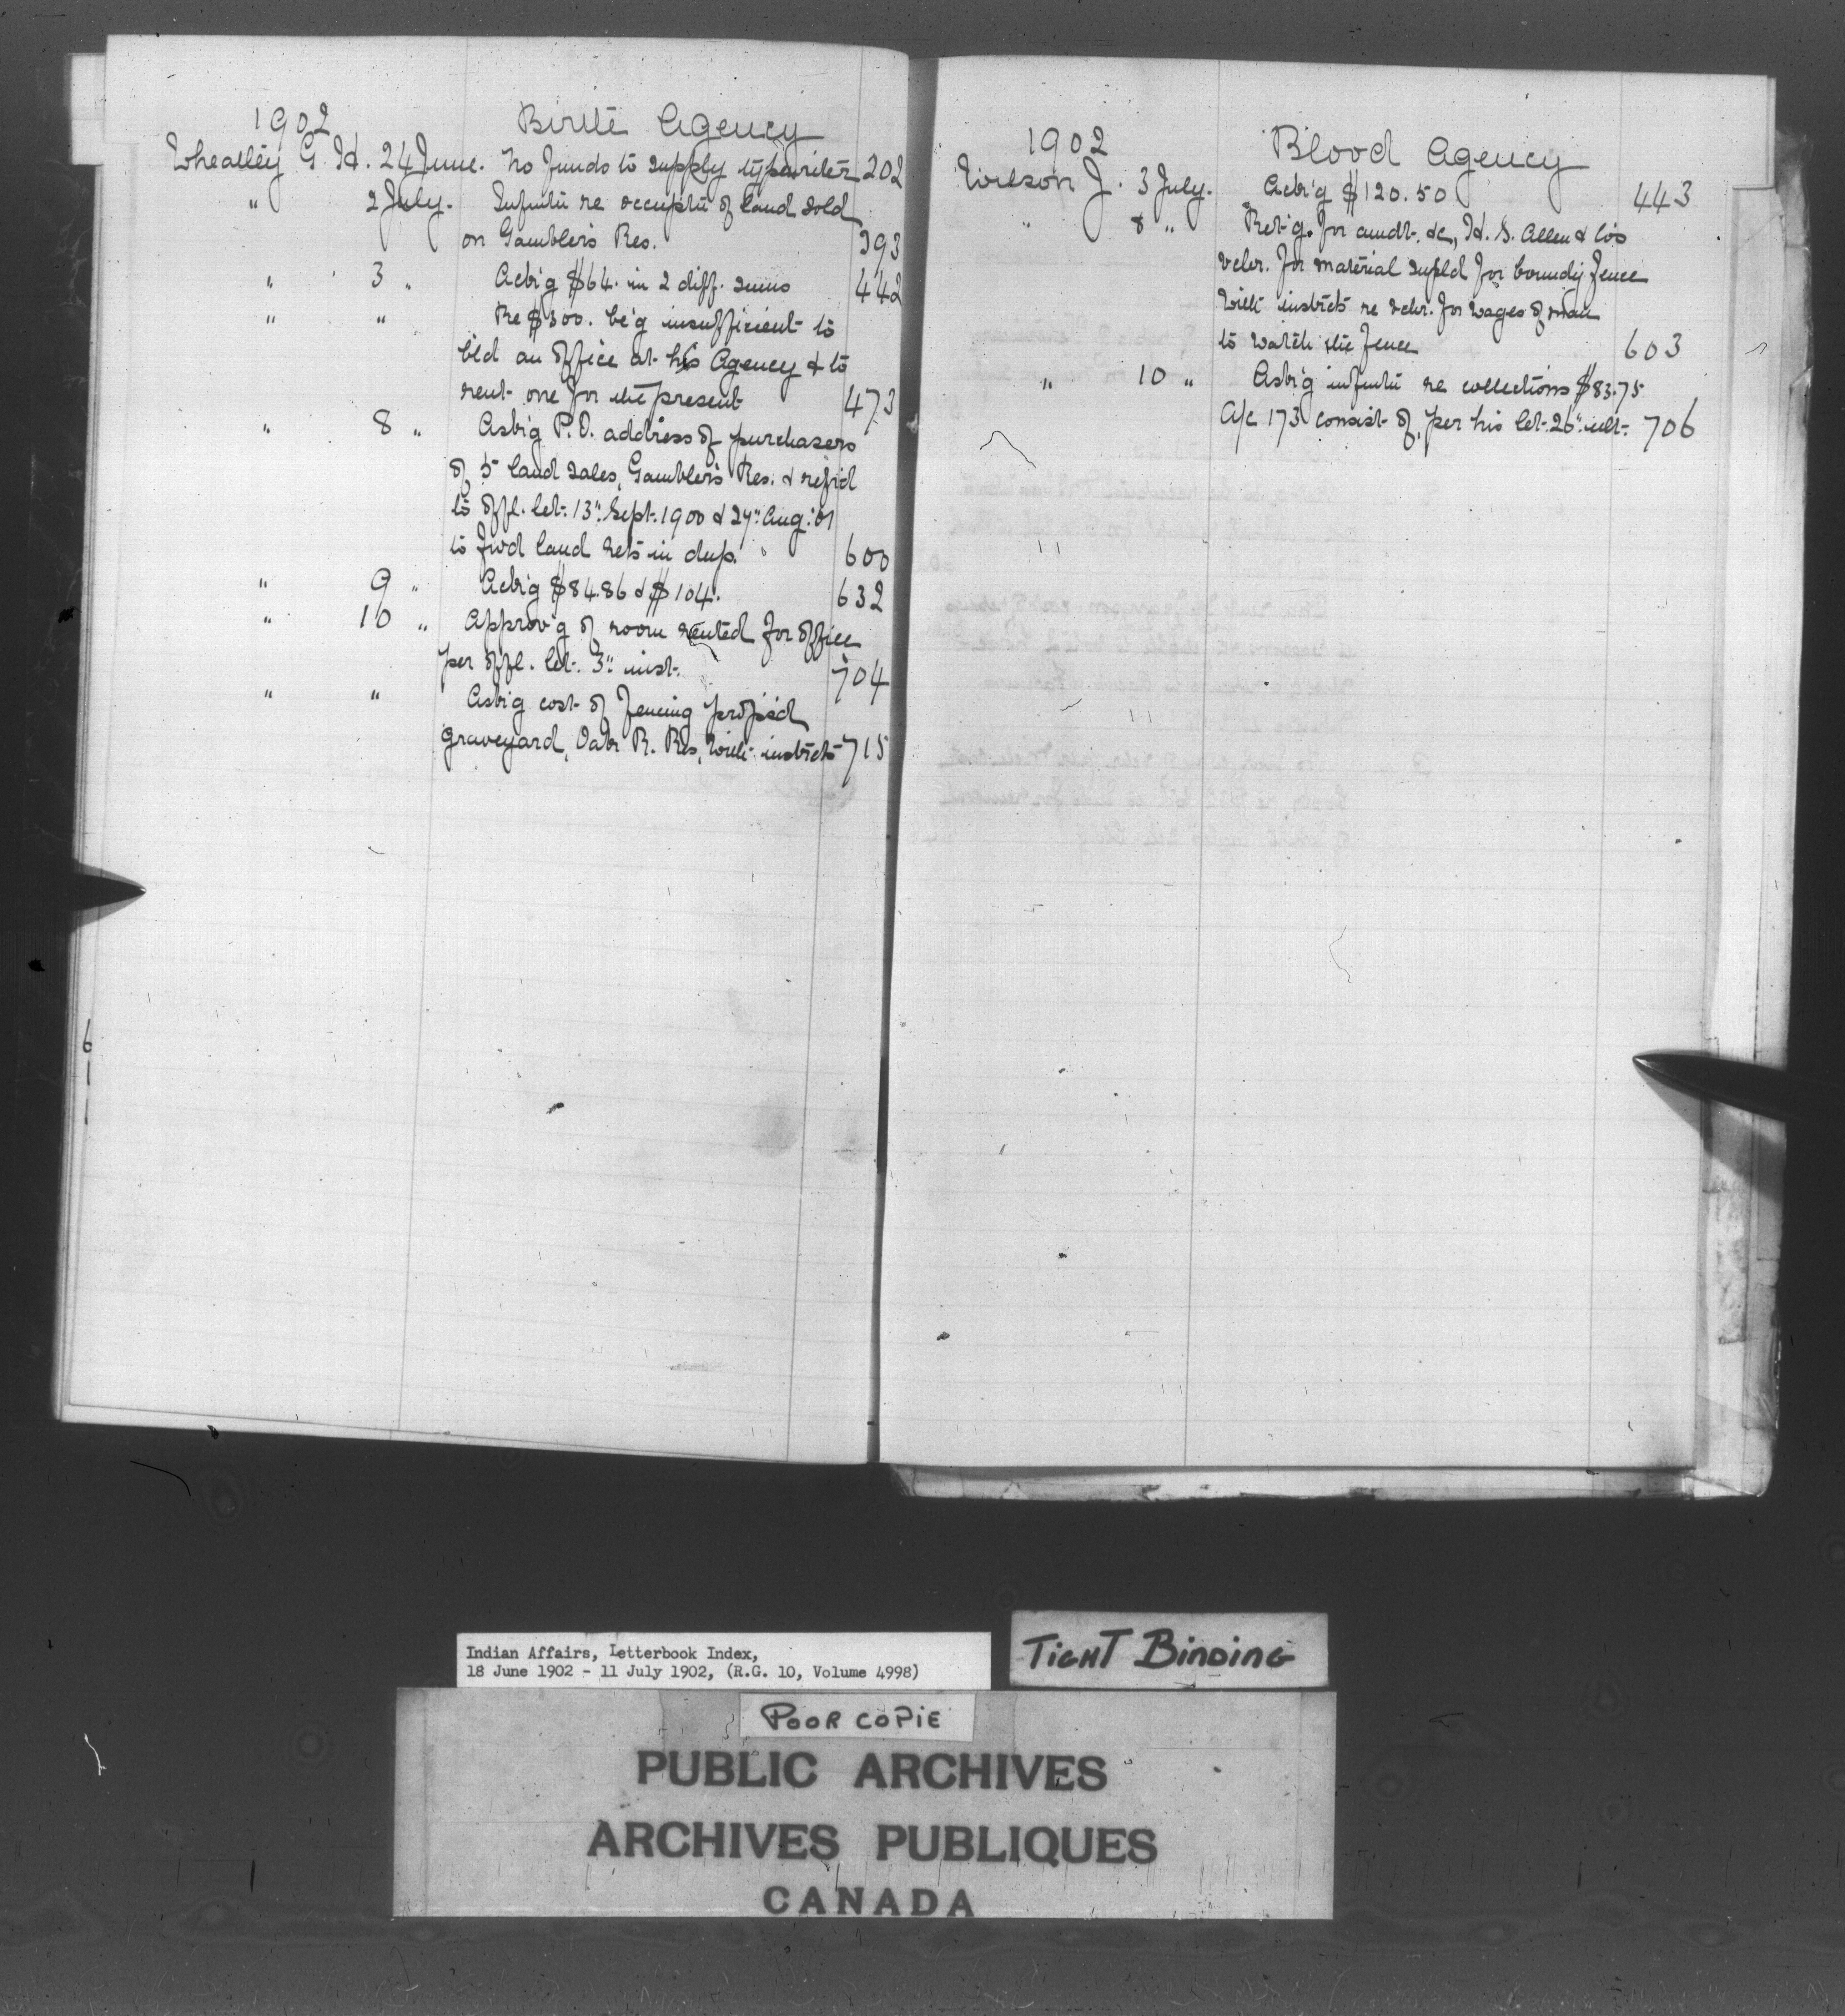 1902 Birtle Agency
Wheatley G. H. 24 June. No funds to supply typewriter 202
" 2 July. Infmtn re occuptn of land sold
on Gamblers Res. 393
" 3 " Ackg $64. in 2 diff. sums 442
" " Re $300. be'g insufficient to
bld an office at his Agency & to
rent one for the present 473
" 8 " Ask'g P.O. address of purchasers
of 5 land sales, Gamblers Res. & refrd
to offl. let. 13" Sept. 1900 & 27" Aug. '01
to fwd land rets in dup. 600
" 9 " Ack'g $84.86 & $104. 632
" 10 " Approv'g of room rented for office
per offl. let. 3" inst. 704
" " Ask'g cost of fencing prop'sd
graveyard, Oak R. Res, with instrcts 715
1902 Blood Agency
Wilson J. 3 July. Ack'g $120.50 443
" 8 " Ret'g. for amdt. &c, H. S. Allen & Co's
vchr. for material supld for boundy fence
with instrcts re vchr. for wages of man
to watch the fence 603
" 10 " Ask'g infmtn re collections $83.75
A/c 173 consist of, per his let. 26" ult. 706
6
Indian Affairs, Letterbook Index,
18 June 1902 - 11 July 1902, (R.G. 10, Volume 4998)
TIGHT BINDING
POOR COPIE
PUBLIC ARCHIVES
ARCHIVES PUBLIQUES
CANADA